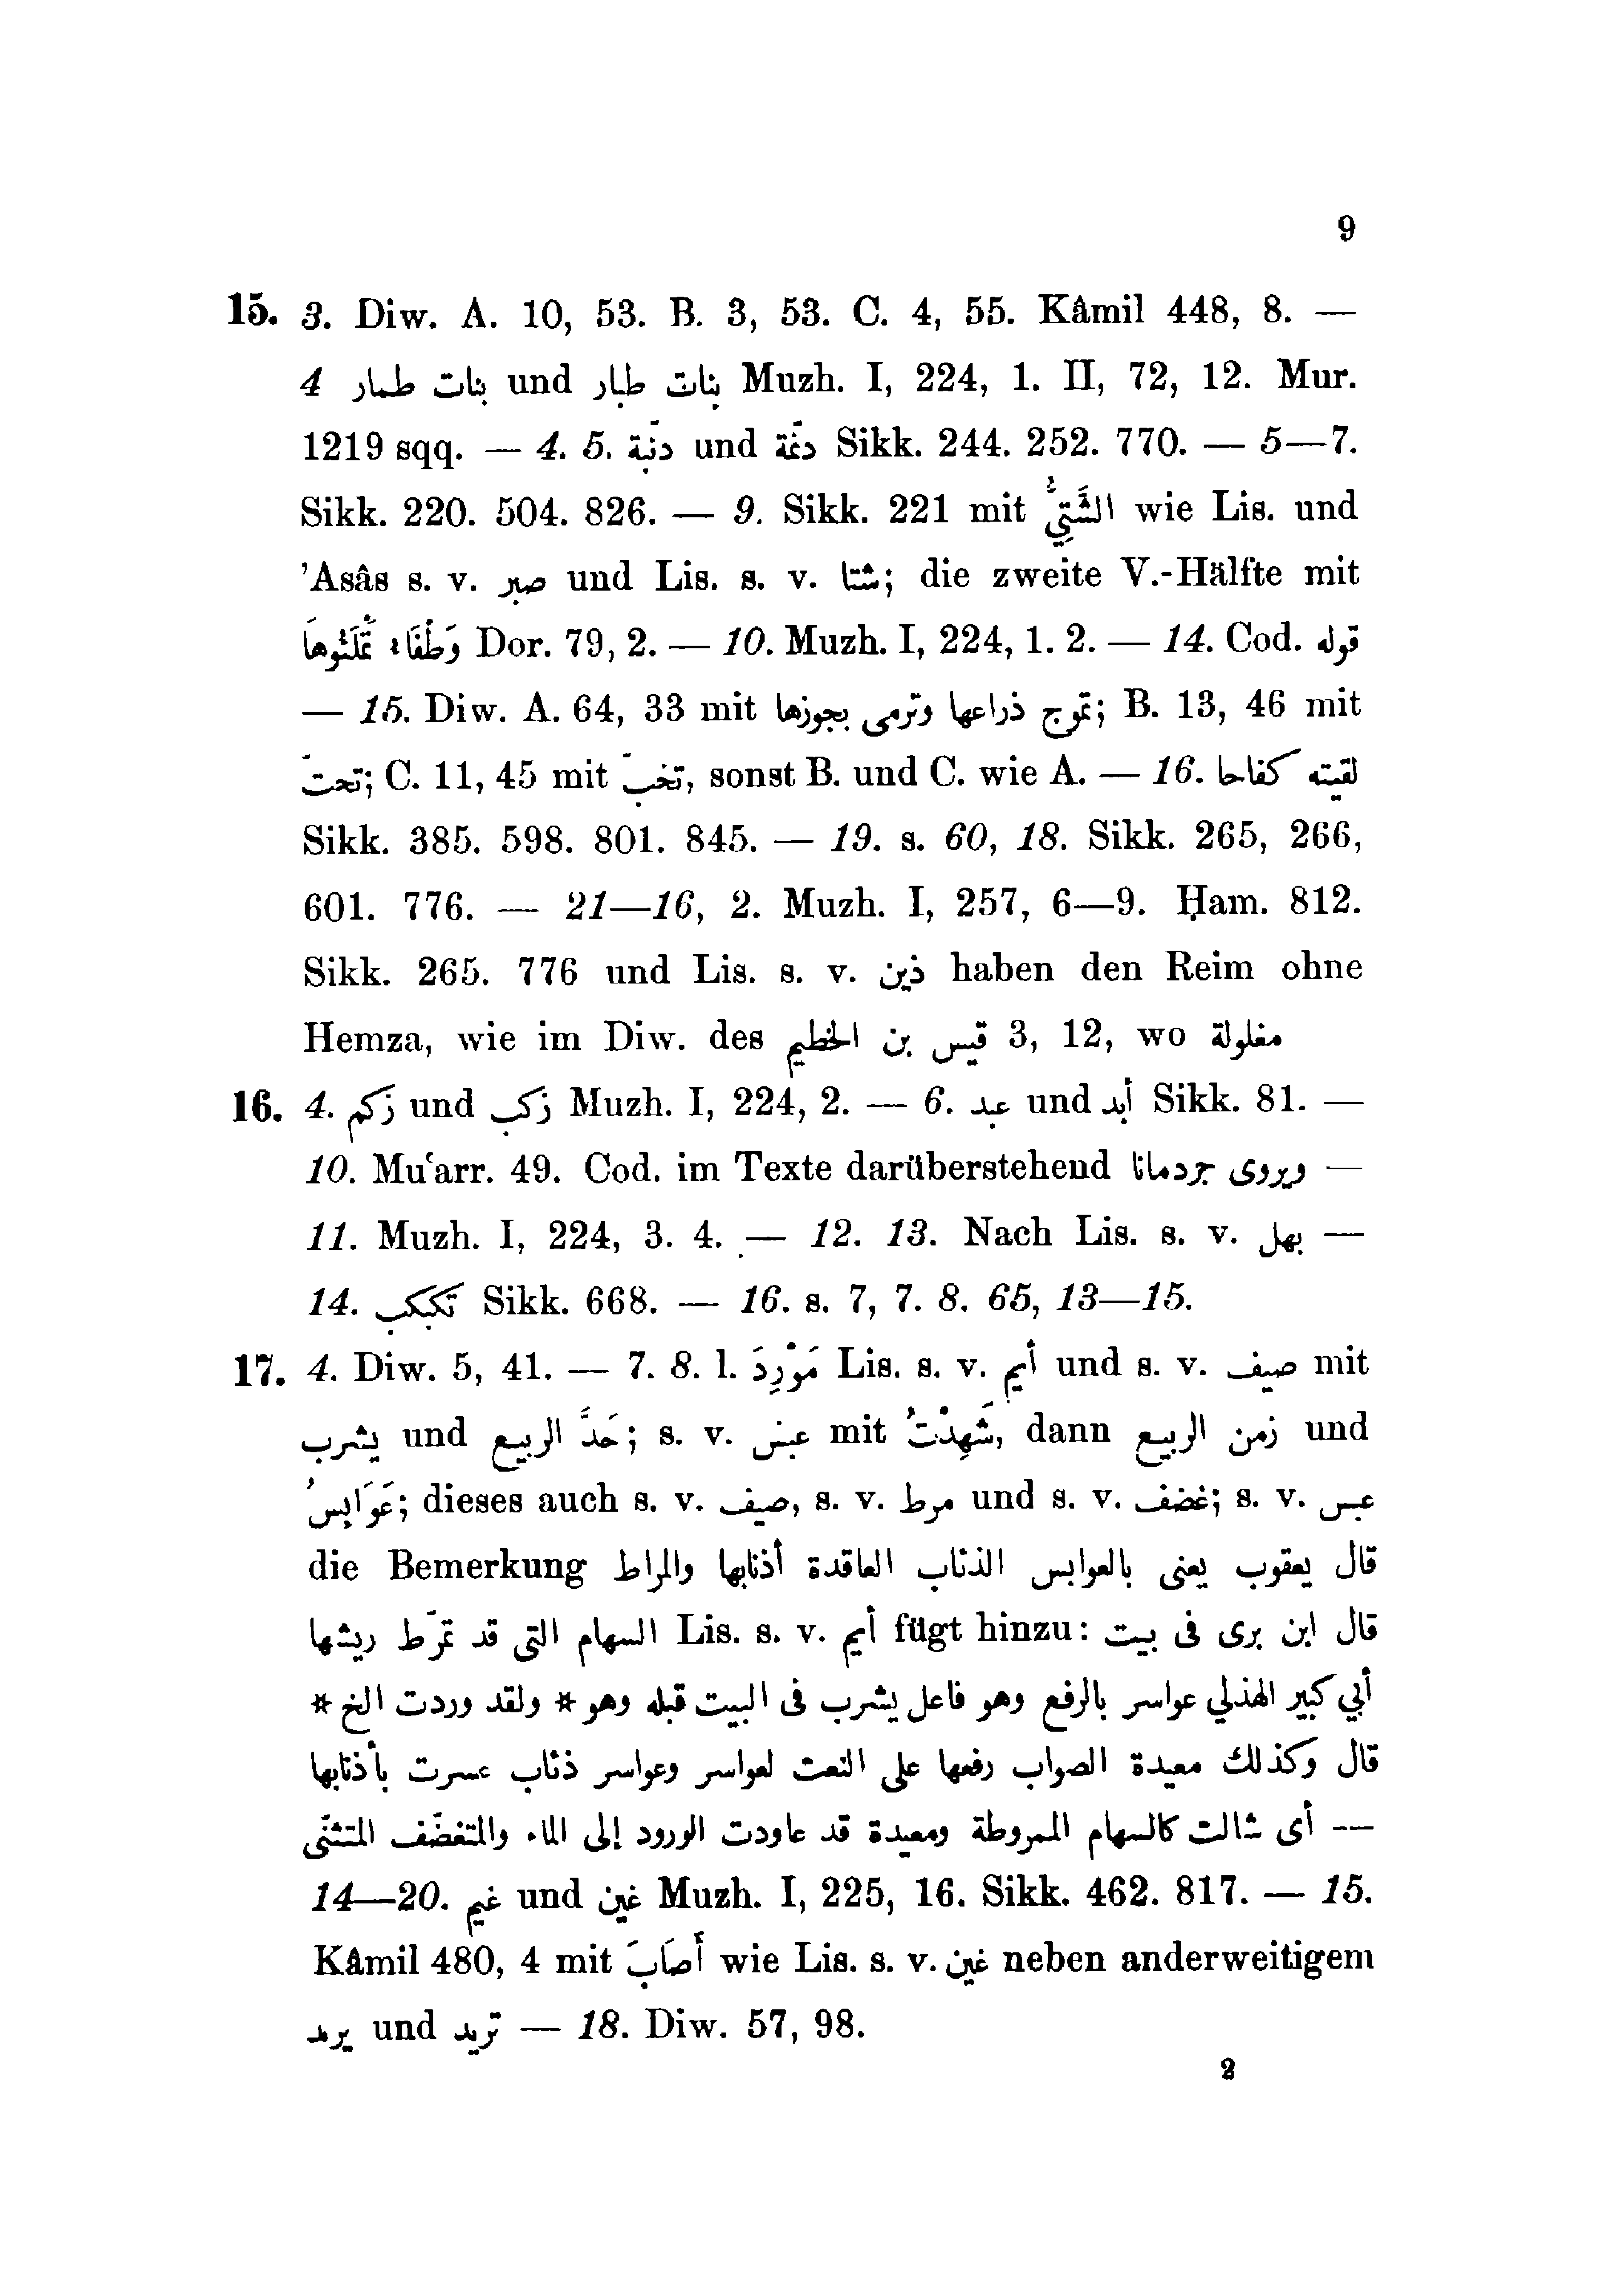 9
15. 3. Diw. A. 10, 53. B. 3, 53. C. 4, 55. Kâmil 448, 8. —
4 بنات طمار und بنات طبار Muzh. I, 224, 1. II, 72, 12. Mur.
1219 sqq. — 4. 5. دنّبة und دنّمة Sikk. 244. 252. 770. — 5—7.
Sikk. 220. 504. 826. — 9. Sikk. 221 mit الشَّتِيُّ wie Lis. und
’Asâs s. v. صبر und Lis. s. v. شتا; die zweite V.-Hälfte mit
وَطْفَاء تَمْلَئُوهَا Dor. 79, 2. — 10. Muzh. I, 224, 1. 2. — 14. Cod. قوله
— 15. Diw. A. 64, 33 mit تموج ذراعها وترمى بجوزها; B. 13, 46 mit
تحتّ; C. 11, 45 mit تخبّ, sonst B. und C. wie A. — 16. لقيته كفاحا
Sikk. 385. 598. 801. 845. — 19. s. 60, 18. Sikk. 265, 266,
601. 776. — 21—16, 2. Muzh. I, 257, 6—9. Ḥam. 812.
Sikk. 265. 776 und Lis. s. v. ذين haben den Reim ohne
Hemza, wie im Diw. des قيس بن الخطيم 3, 12, wo مغلولة
16. 4. زكم und زكب Muzh. I, 224, 2. — 6. عبد und أبد Sikk. 81. —
10. Muʿarr. 49. Cod. im Texte darüberstehend ويروى جردمانا —
11. Muzh. I, 224, 3. 4. — 12. 13. Nach Lis. s. v. بهل —
14. تكبكب Sikk. 668. — 16. s. 7, 7. 8. 65, 13—15.
17. 4. Diw. 5, 41. — 7. 8. l. مَوْرِدَ Lis. s. v. أيم und s. v. صيف mit
يشرب und حَدَّ الربيع; s. v. عبس mit شَهِدْتُ, dann زمن الربيع und
عَوَابِسُ; dieses auch s. v. صيف, s. v. مرط und s. v. غضف; s. v. عبس
die Bemerkung قال يعقوب يعنى بالعوابس الذئاب العاقدة أذنابها والمراط
السهام التى قد تمرّط ريشها Lis. s. v. أيم fügt hinzu: قال ابن برى فى بيت
أبي كبير الهذلي عواسر بالرفع وهو فاعل يشرب فى البيت قبله وهو * ولقد وردت الخ *
قال وكذلك معيدة الصواب رفعها على النعت لعواسر وعواسر ذئاب عسرت بأذنابها
أى شالت كالسهام الممروطة ومعيدة قد عاودت الورود إلى الماء والمتغضّف المتثنّى —
14—20. غيم und غين Muzh. I, 225, 16. Sikk. 462. 817. — 15.
Kâmil 480, 4 mit أَصَابَ wie Lis. s. v. غين neben anderweitigem
يريد und تريد — 18. Diw. 57, 98.
2